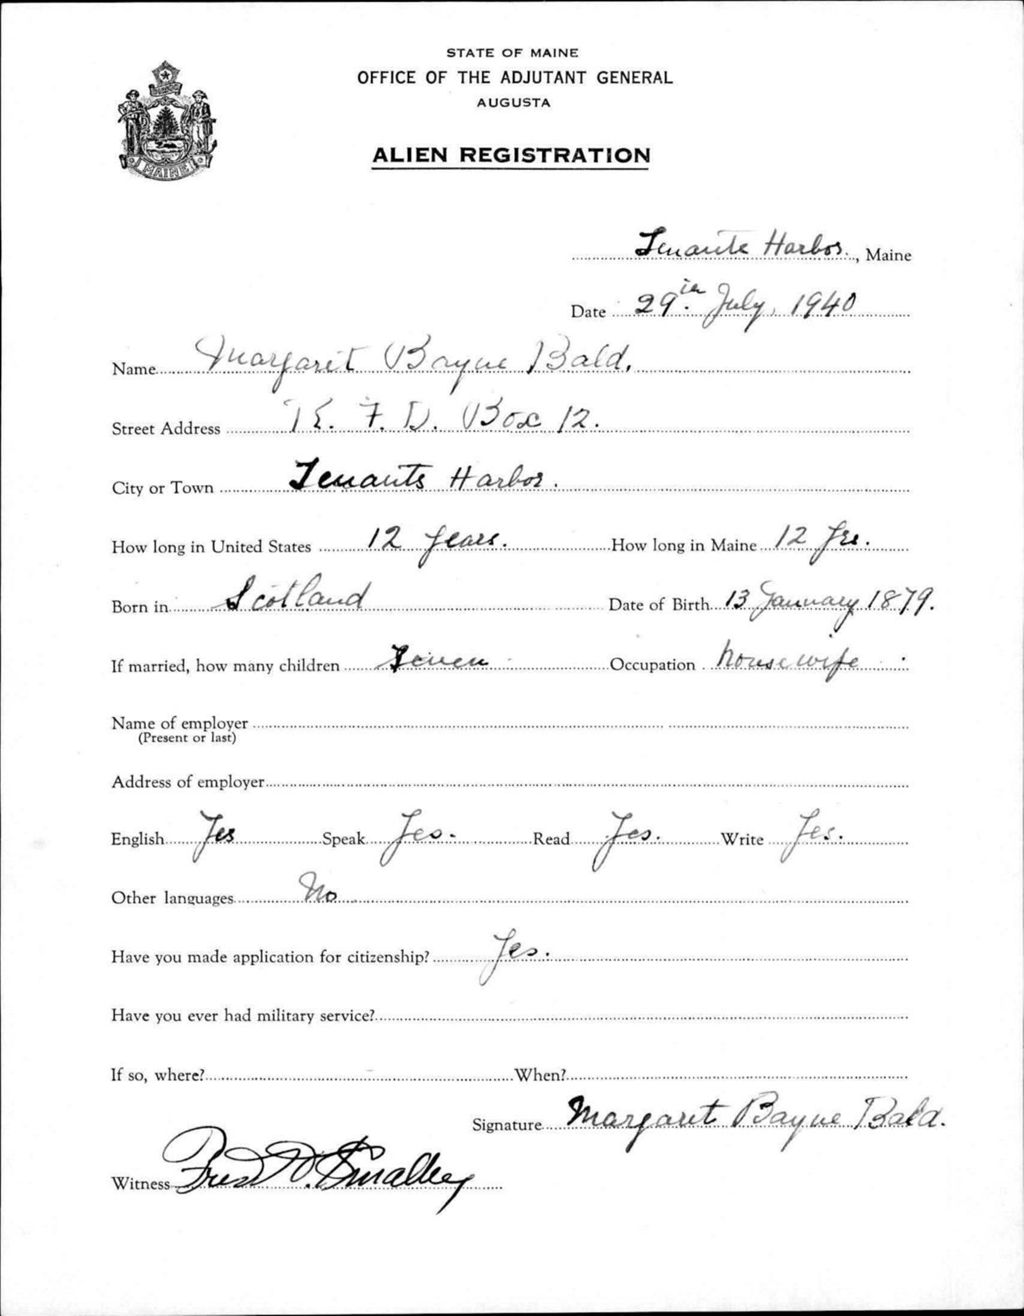 STATE OF MAINE
OFFICE OF THE ADJUTANT GENERAL
AUGUSTA
ALIEN REGISTRATION
MAINE
Tenants Harbor, Maine
Date 29th July, 1940
Name Margaret Bayne Bald.
Street Address R. F. D. Box 12.
City or Town Tenants Harbor.
How long in United States 12 years. How long in Maine 12 Yrs.
Born in Scotland Date of Birth 13 January 1879.
If married, how many children Seven Occupation housewife.
Name of employer
(Present or last)
Address of employer
English Yes Speak Yes. Read Yes. Write Yes.
Other languages No
Have you made application for citizenship? Yes.
Have you ever had military service?
If so, where? When?
Signature Margaret Bayne Bald.
Witness Fred D. Smalley